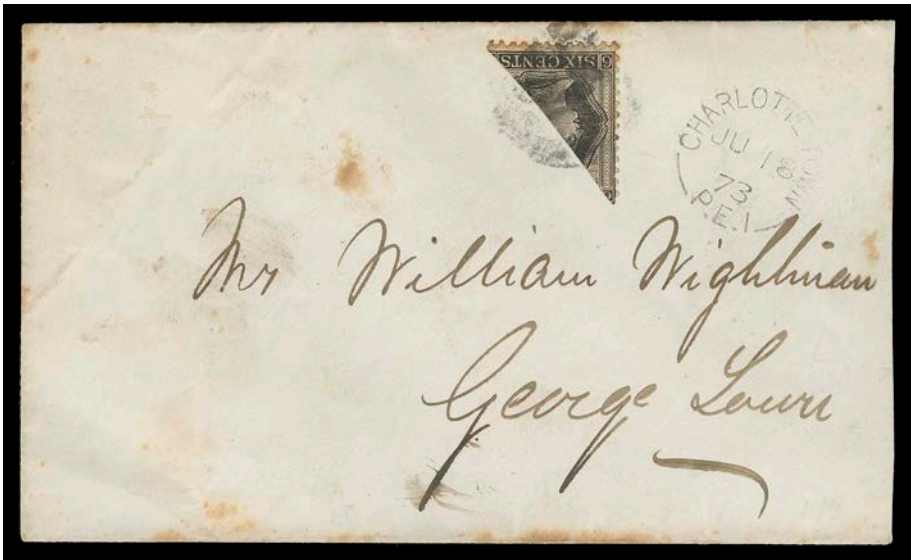 6 SIX CENTS
CHARLOTTE TOWN
JU 18
73
P.E.I
Mr William Wightman
George Town